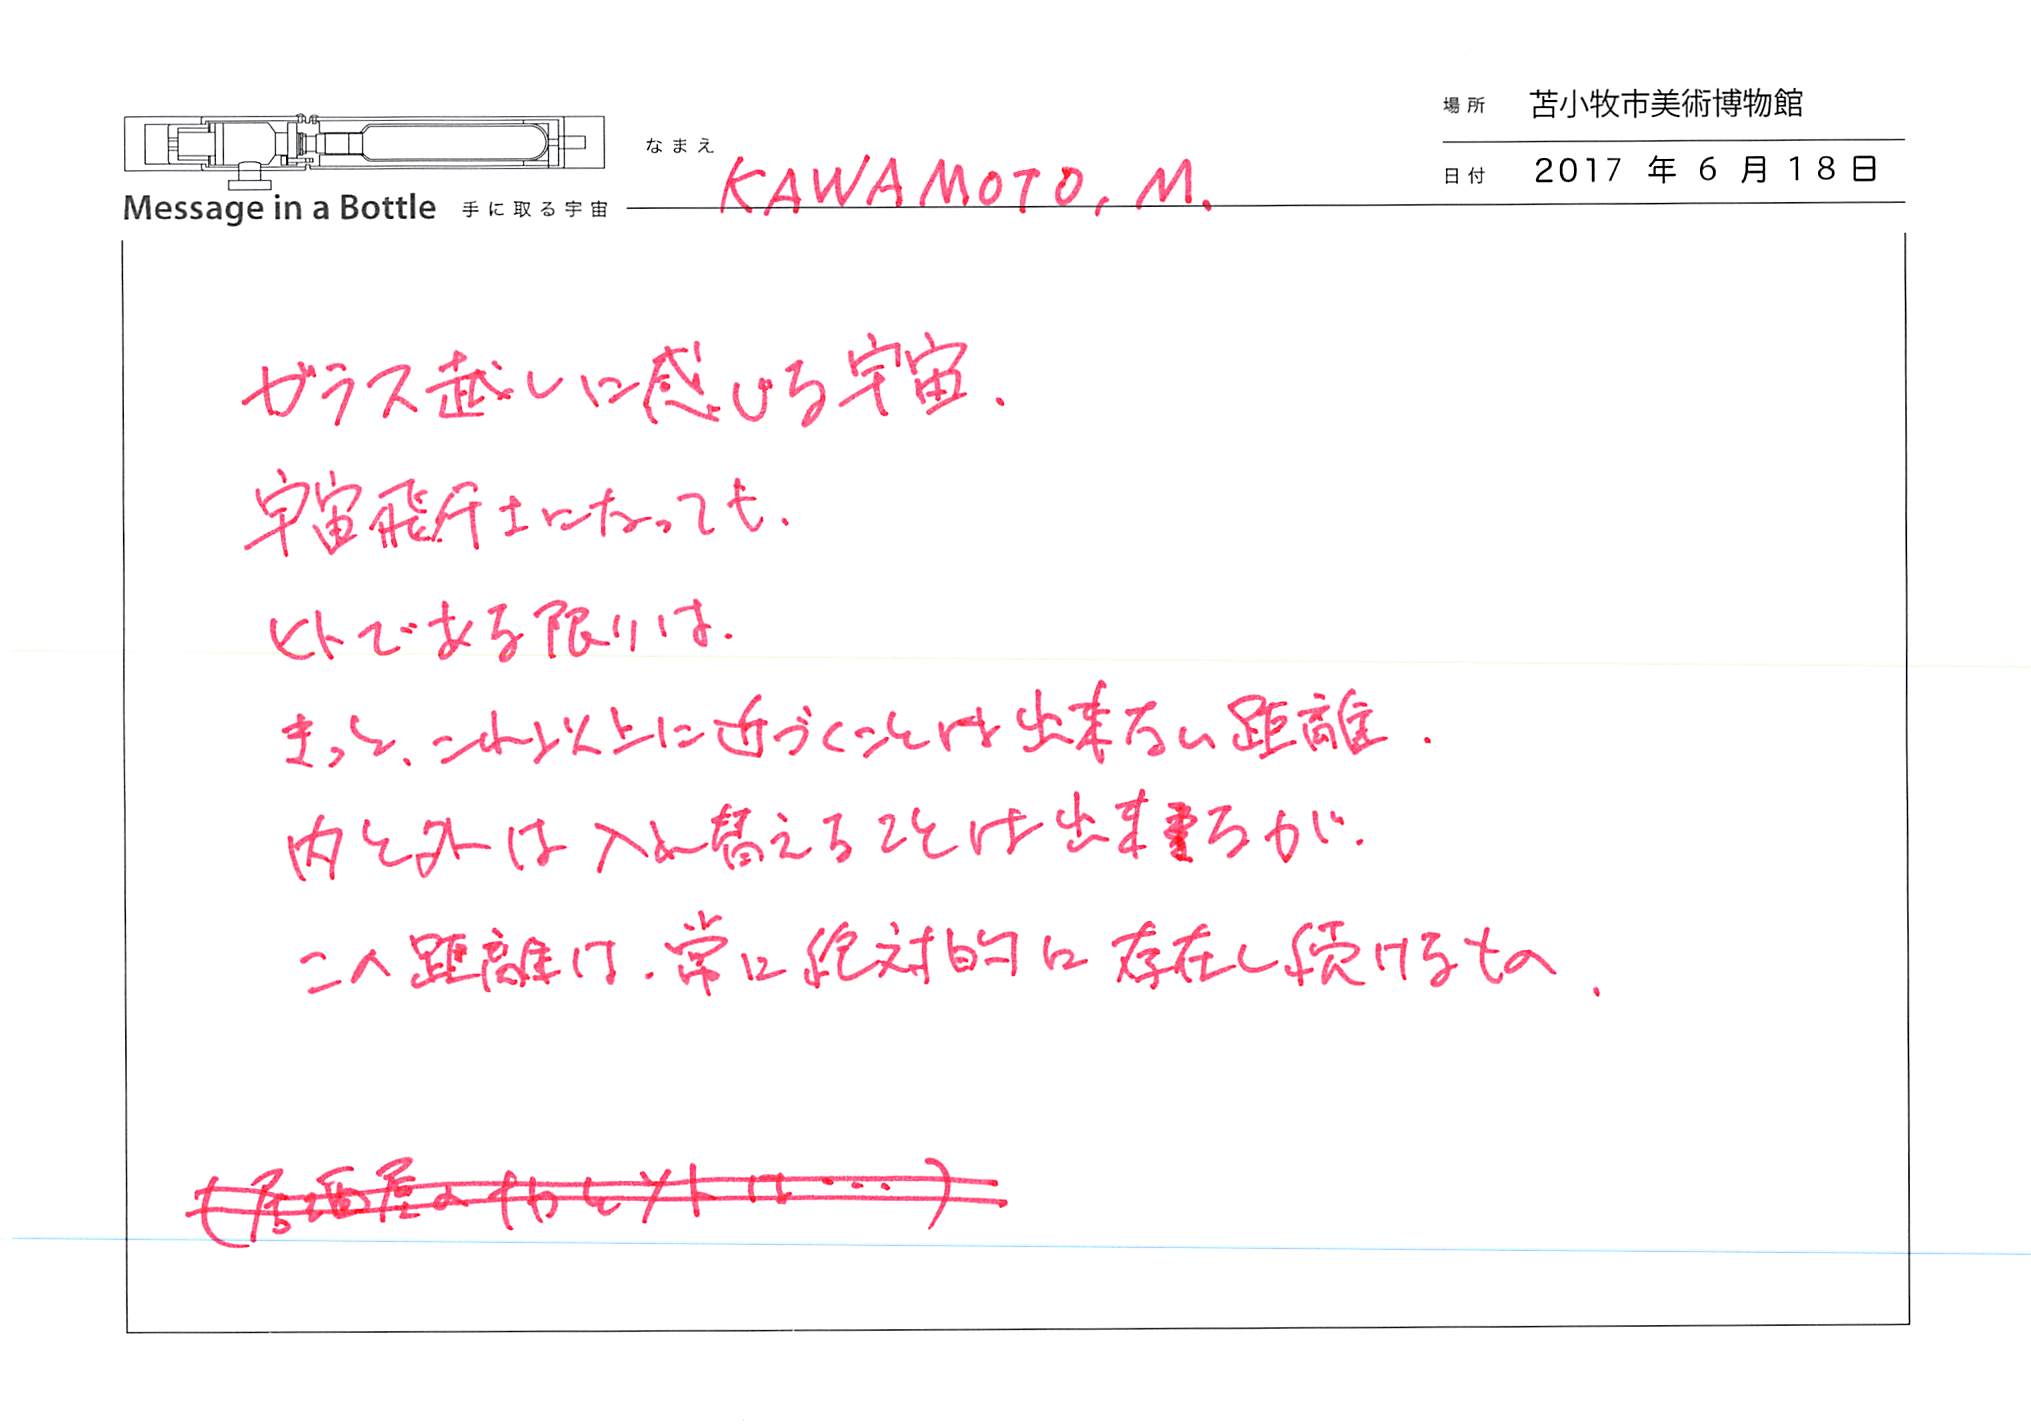 場所 苫小牧市美術博物館
なまえ KAWAMOTO, M.
日付 2017 年 6 月 18 日
Message in a Bottle 手に取る宇宙
ガラス越しに感じる宇宙.
宇宙飛行士になっても.
ヒトである限りは.
きっと、これ以上に近づくことは出来ない距離.
内と外は入れ替えることは出来るが.
この距離は.常に絶対的に存在し続けるもの.
(居酒屋の